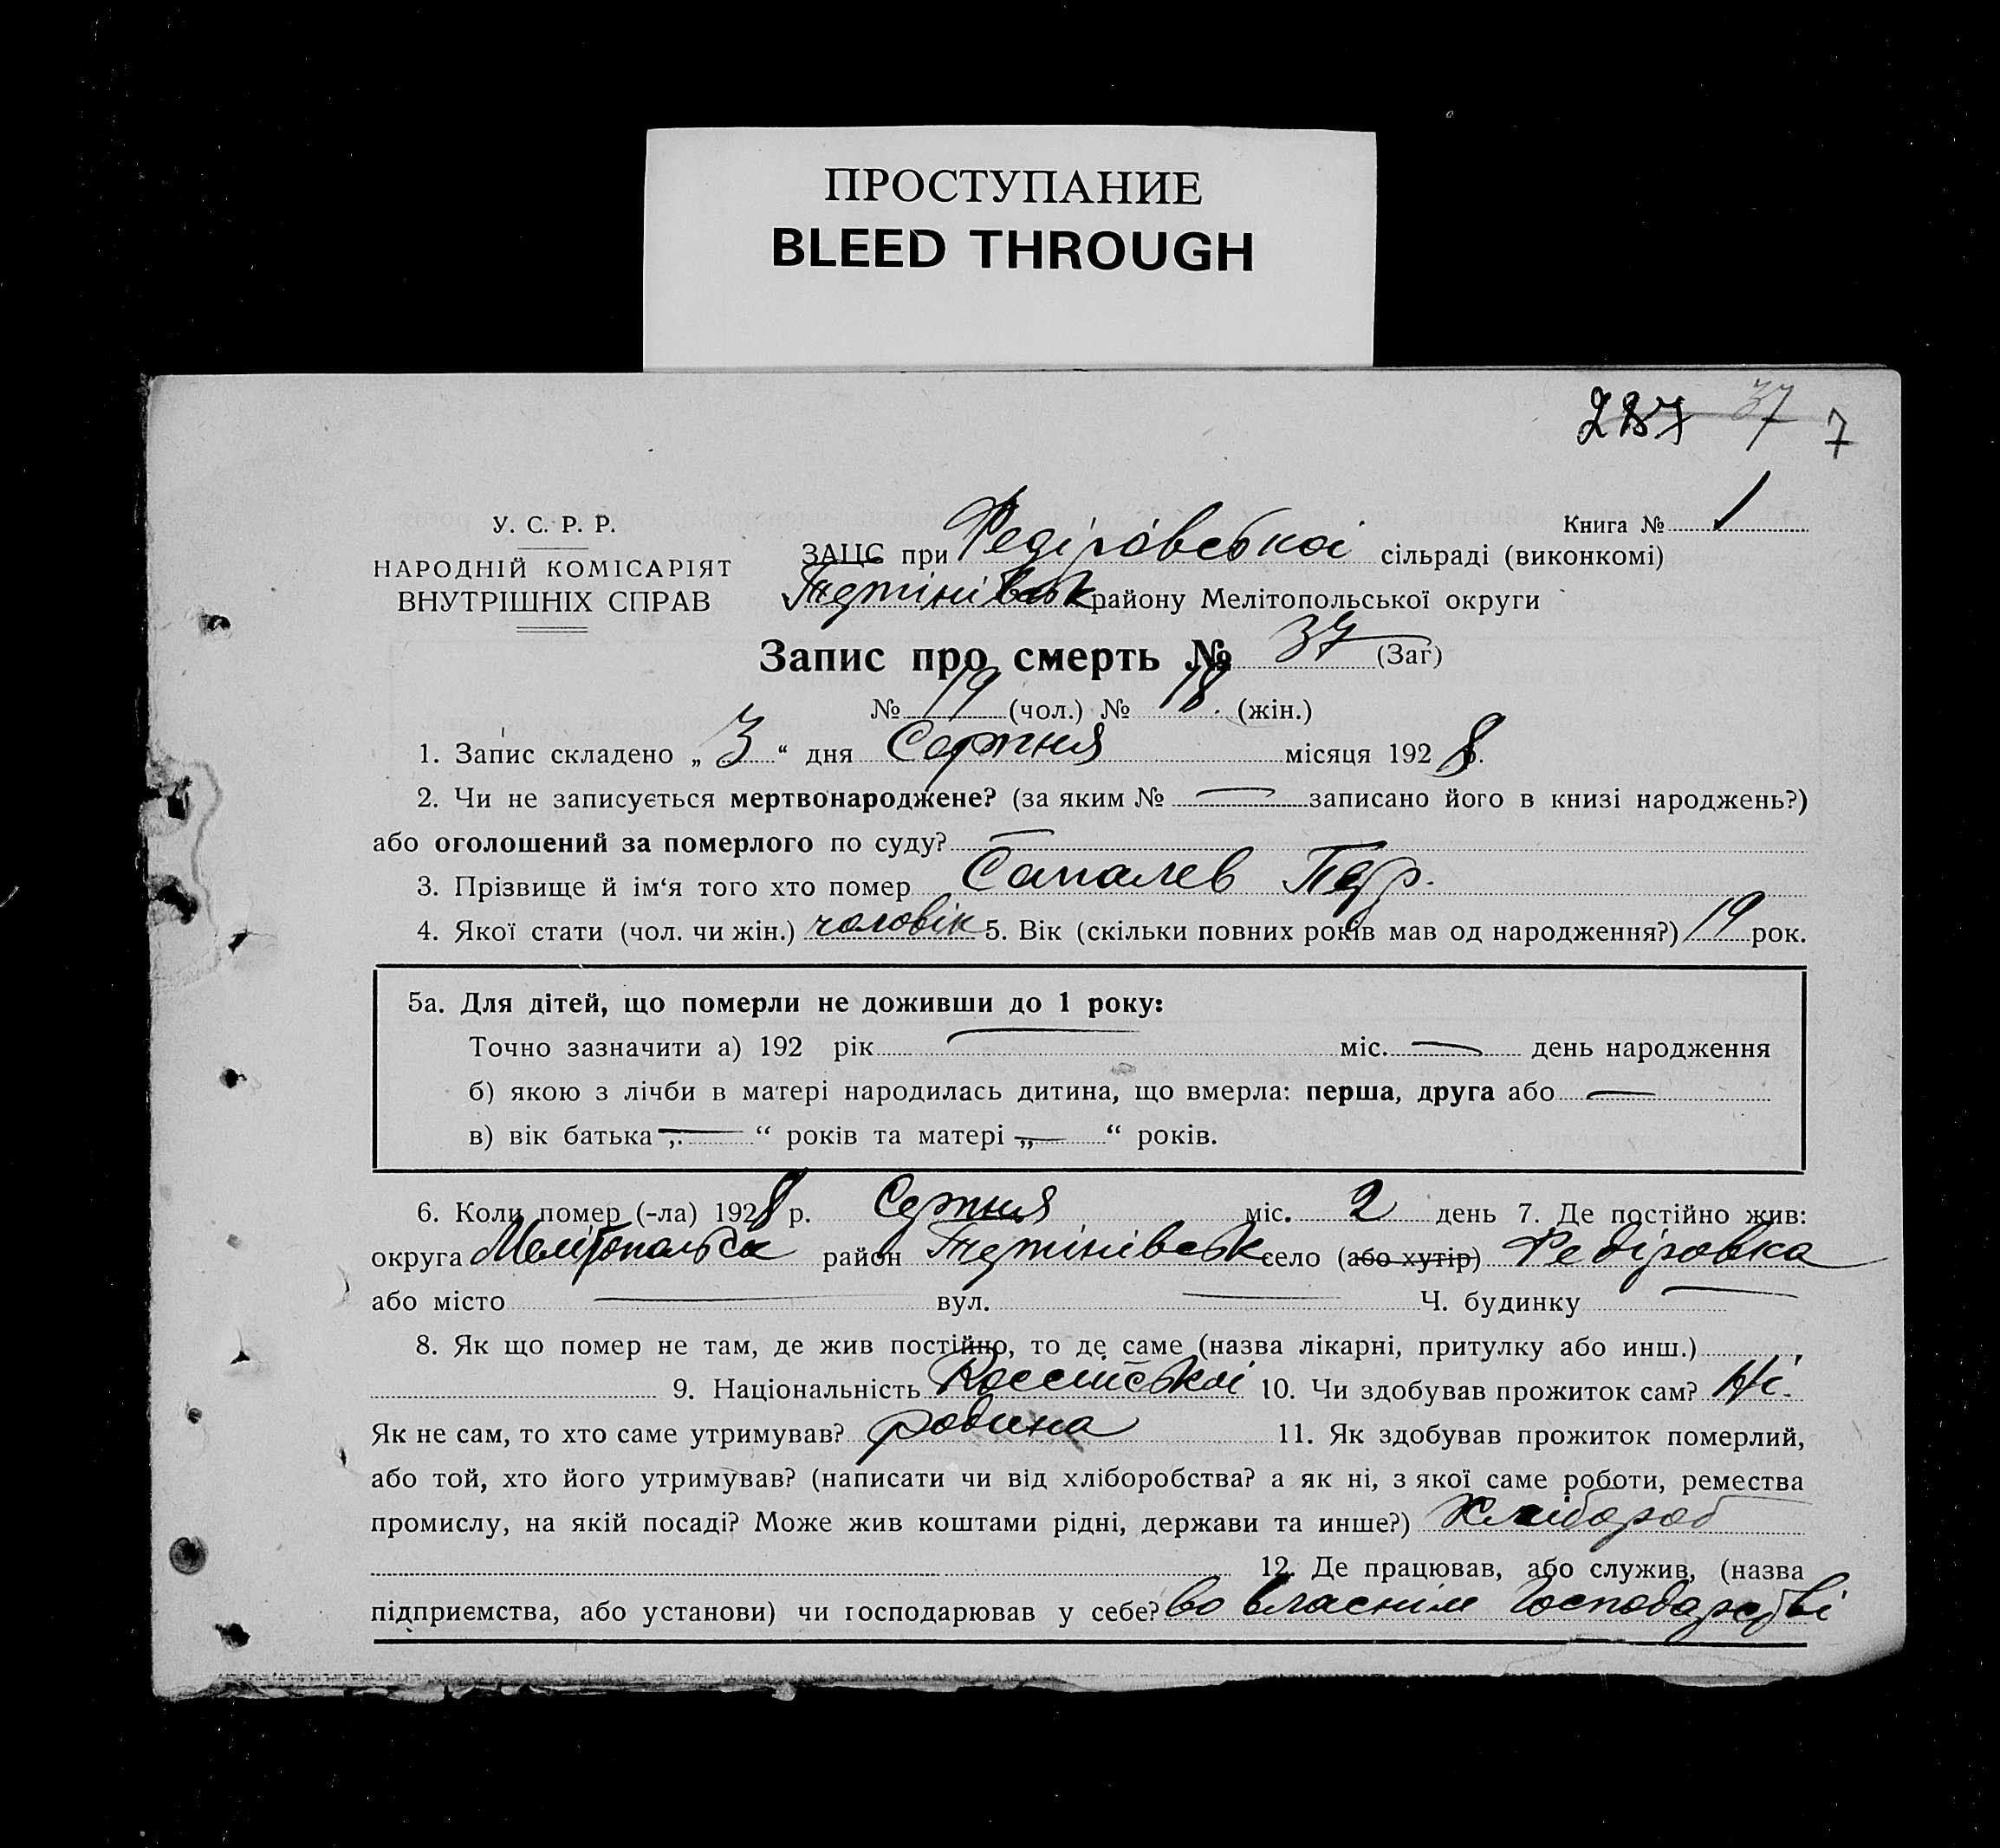 ПРОСТУПАНИЕ
BLEED THROUGH
287 37 7
У. С. Р. Р.
НАРОДНІЙ КОМІСАРІЯТ
ВНУТРІШНІХ СПРАВ
Книга № 1
ЗАЦС при Федіровської сільраді (виконкомі)
району Мелітопольської округи
Запис про смерть № 37 (Заг)
№ 19 (чол.) № 18. (жін.)
1. Запис складено „ 3 “ дня Серпня місяця 192 8 р.
2. Чи не записується мертвонароджене? (за яким № — записано його в книзі народжень?)
або оголошений за померлого по суду? —
3. Прізвище й ім‘я того хто помер
4. Якої стати (чол. чи жін.) чоловік 5. Вік (скільки повних років мав од народження?) 19 рок.
5а. Для дітей, що померли не доживши до 1 року:
Точно зазначити а) 192 рік — міс. — день народження
б) якою з лічби в матері народилась дитина, що вмерла: перша, друга або —
в) вік батька „ — “ років та матері „ — “ років.
6. Коли помер (-ла) 1928 р. Серпня міс. 2 день 7. Де постійно жив:
округа Мелітопольська район село (або хутір) Федіровка
або місто — вул. — Ч. будинку —
8. Як що помер не там, де жив постійно, то де саме (назва лікарні, притулку або инш.)
9. Національність Россійської 10. Чи здобував прожиток сам? Ні.
Як не сам, то хто саме утримував? родина 11. Як здобував прожиток померлий,
або той, хто його утримував? (написати чи від хліборобства? а як ні, з якої саме роботи, ремества
промислу, на якій посаді? Може жив коштами рідні, держави та инше?) Хлібороб
12. Де працював, або служив, (назва
підприємства, або установи) чи господарював у себе? во власнім господарстві